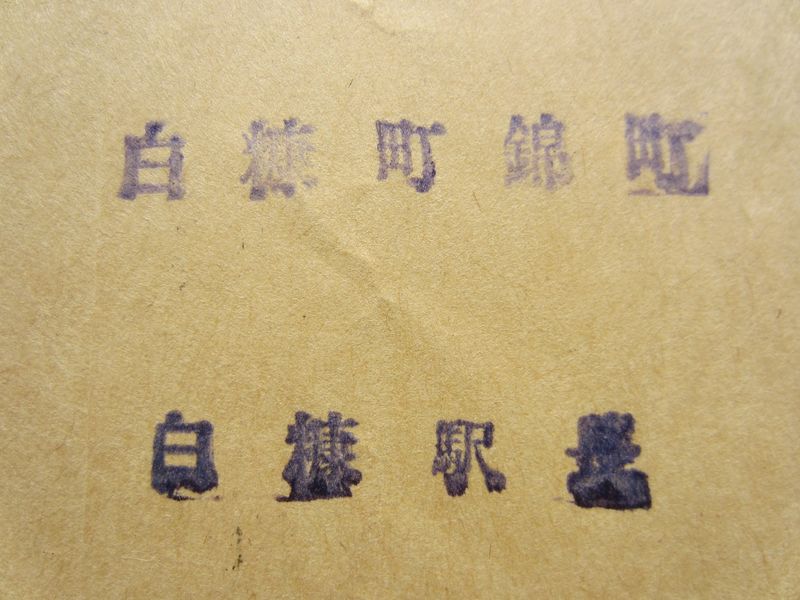 白糠町錦町
白糠駅長